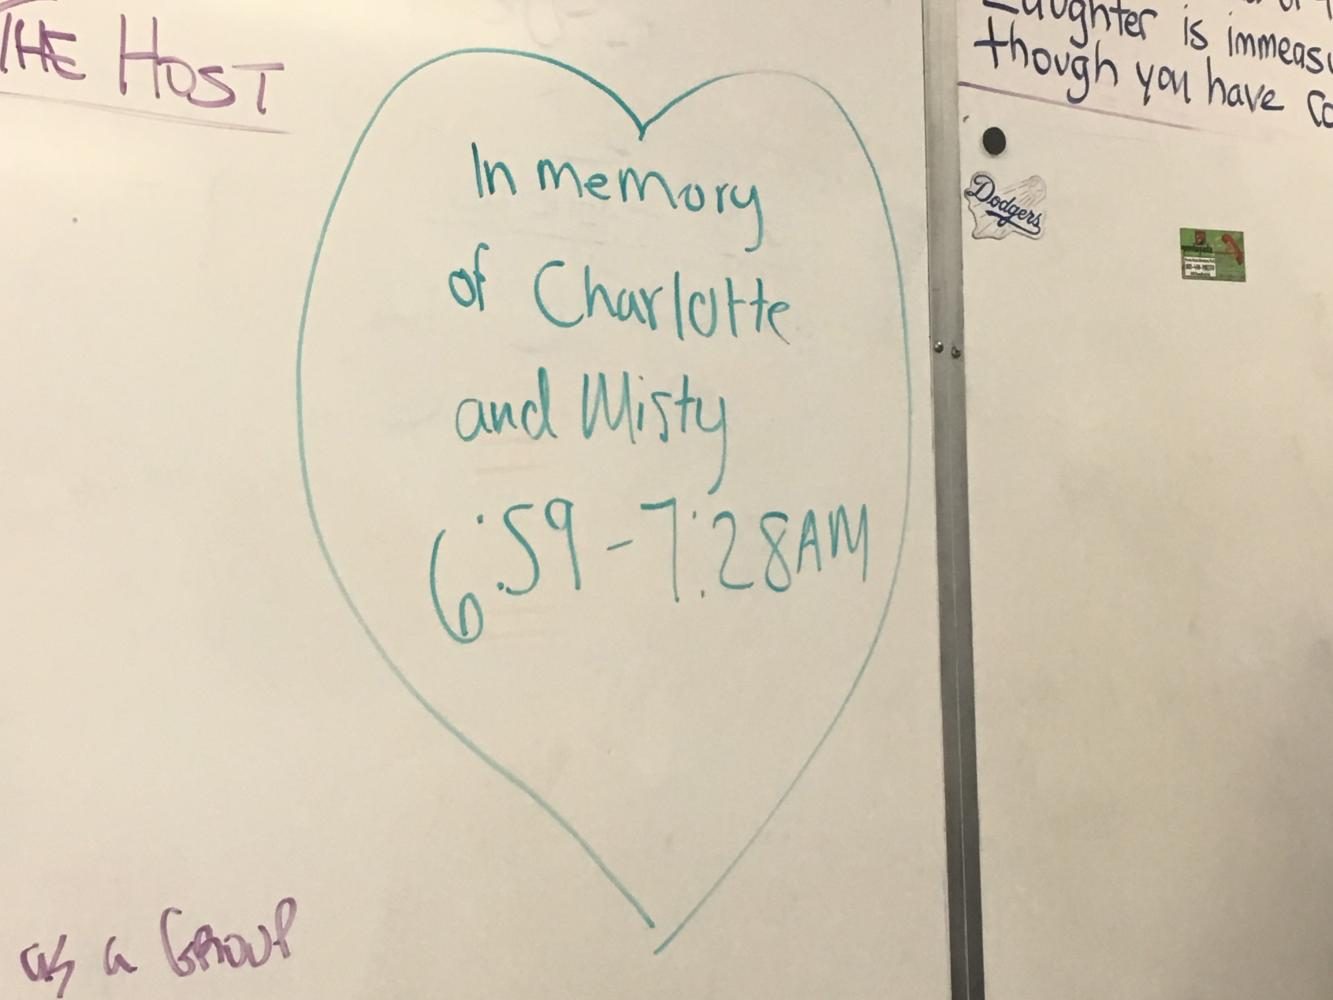 THE HOST
In memory
of Charlotte
and Misty
6:59-7:28AM
as a GROUP
Laughter is
though you have
Dodgers